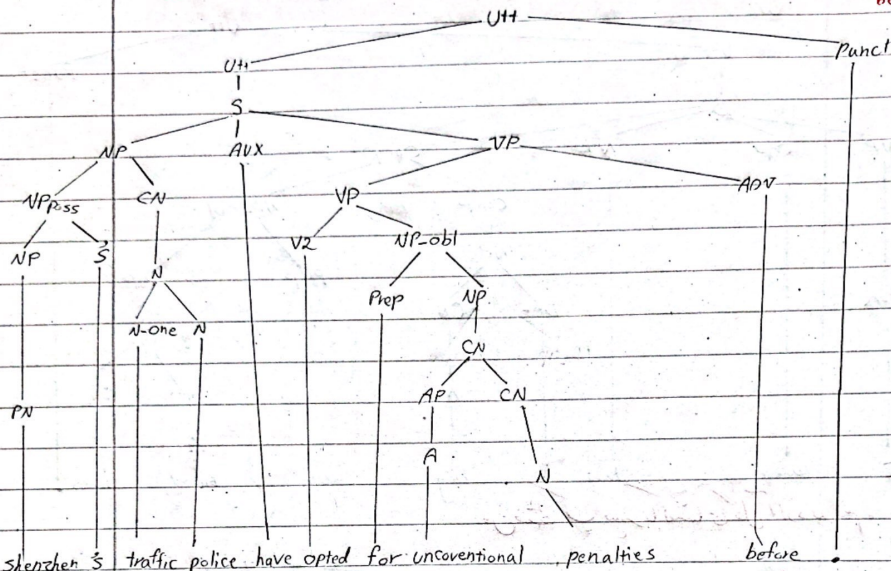 Utt
Punct
Utt
S
NP AUX VP
NPPoss CN VP ADV
NP 's V2 NP-obl
N Prep NP
N-one N
CN
PN AP CN
A N
shenzhen 's traffic police have opted for uncoventional penalties before .